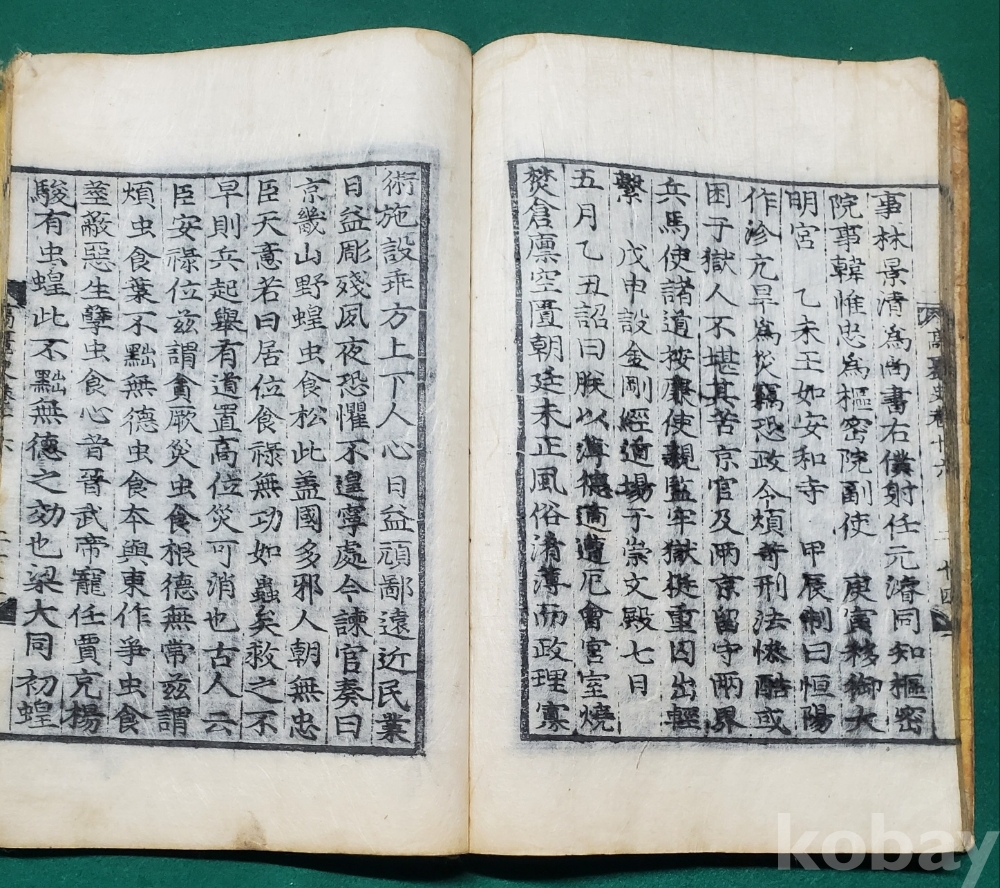 事林景淸爲尙書右僕射任元濬同知樞密
院事韓惟忠爲樞密院副使 庚寅移御大
明宮 乙未王如安和寺 甲辰制曰恒陽
作沴亢旱爲災竊恐政令煩苛刑法慘酷或
困于獄人不堪其苦京官及兩京留守兩界
兵馬使諸道按廉使親監牢獄挺重囚出輕
繫 戊申設金剛經道場于崇文殿七日
五月乙丑詔曰朕以薄德適遭厄會宮室燒
焚倉廩空匱朝廷未正風俗淸薄而政理寡
術施設乖方上下人心日益頑鄙遠近民業
日益彫殘夙夜恐懼不遑寧處今諫官奏曰
京畿山野蝗虫食松此盖國多邪人朝無忠
臣天意若曰居位食祿無功如蟲矣救之不
早則兵起擧有道置高位災可消也古人云
臣安祿位玆謂貪厥災虫食根德無常玆謂
煩虫食葉不黜無德虫食夲與東作爭虫食
莖蔽惡生孽虫食心昔晉武帝寵任賈充楊
駿有虫蝗此不黜無德之効也梁大同初蝗
kobay